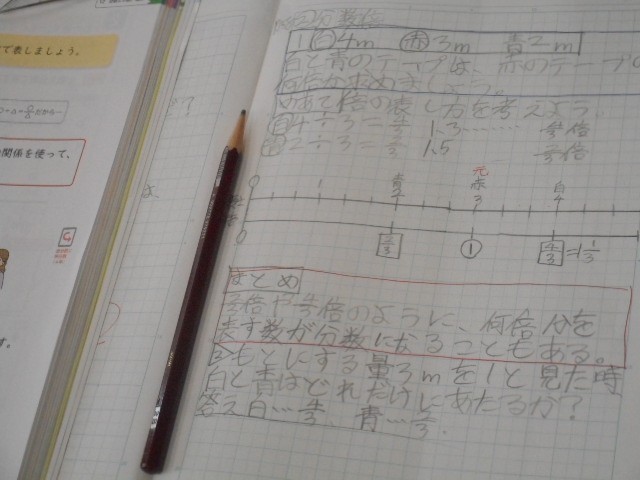 で表しましょう。
の関係を使って、
分数倍
白4m 赤3m 青2m
白と青のテープは、赤のテープの
何倍か求めましょう。
めあて倍の表し方を考えよう。
4÷3=4/3 1.3…… 4/3倍
2÷3=2/3 1.5 2/3倍
元
0 1 青 赤 白
2 3 4
0 2/3 1 4/3=1 1/3
まとめ
2/3倍や4/3倍のように、何倍分を
表す数が分数になることもある。
②もとにする量3mを1と見た時
白と青はどれだけにあたるか?
答え白…4/3、青…2/3.
す。